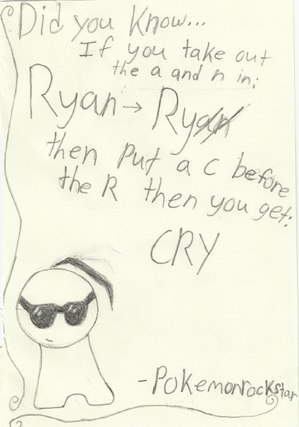 Did you Know...
If you take out
the a and n in:
Ryan → Ryan
then put a C before
the R then you get:
CRY
-Pokemonrockstar